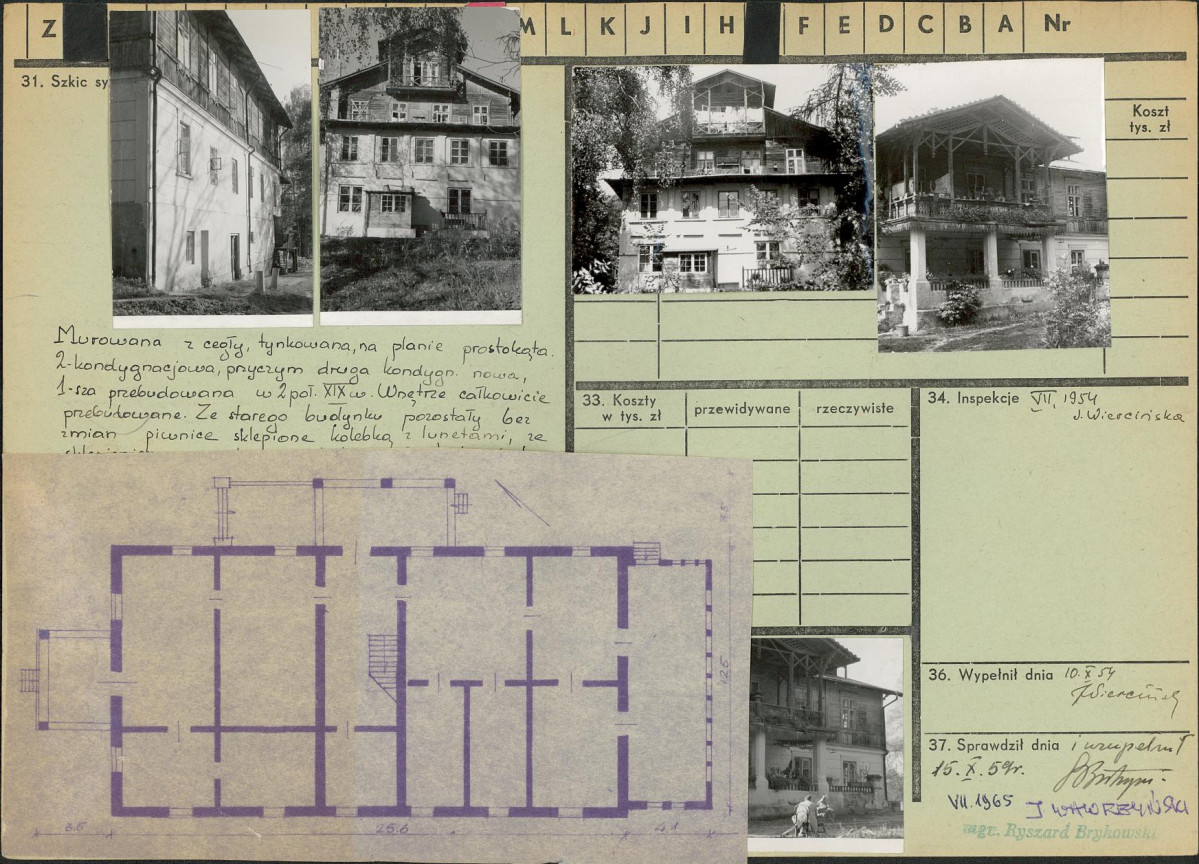 Z M L K J I H F E D C B A Nr
31. Szkic sy
Koszt
tys. zł
Murowana z cegły, tynkowana, na planie prostokąta.
2-kondygnacjowa, przyczym druga kondygn. nowa,
1-sza przebudowana w 2 poł. XIX w. Wnętrze całkowicie
przebudowane. Ze starego budynku pozostały bez
zmian piwnice sklepione kolebką z lunetami, ze
33. Koszty
w tys. zł
przewidywane
rzeczywiste
34. Inspekcje VII, 1954
J. Wiercińska
3.5
12.5
3.5
25.6
4.1
36. Wypełnił dnia 10.X 54
JWiercińska
37. Sprawdził dnia i uzupełnił
15.X.59r.
VII.1965 J WAWRZYŃSKI
mgr. Ryszard Brykowski